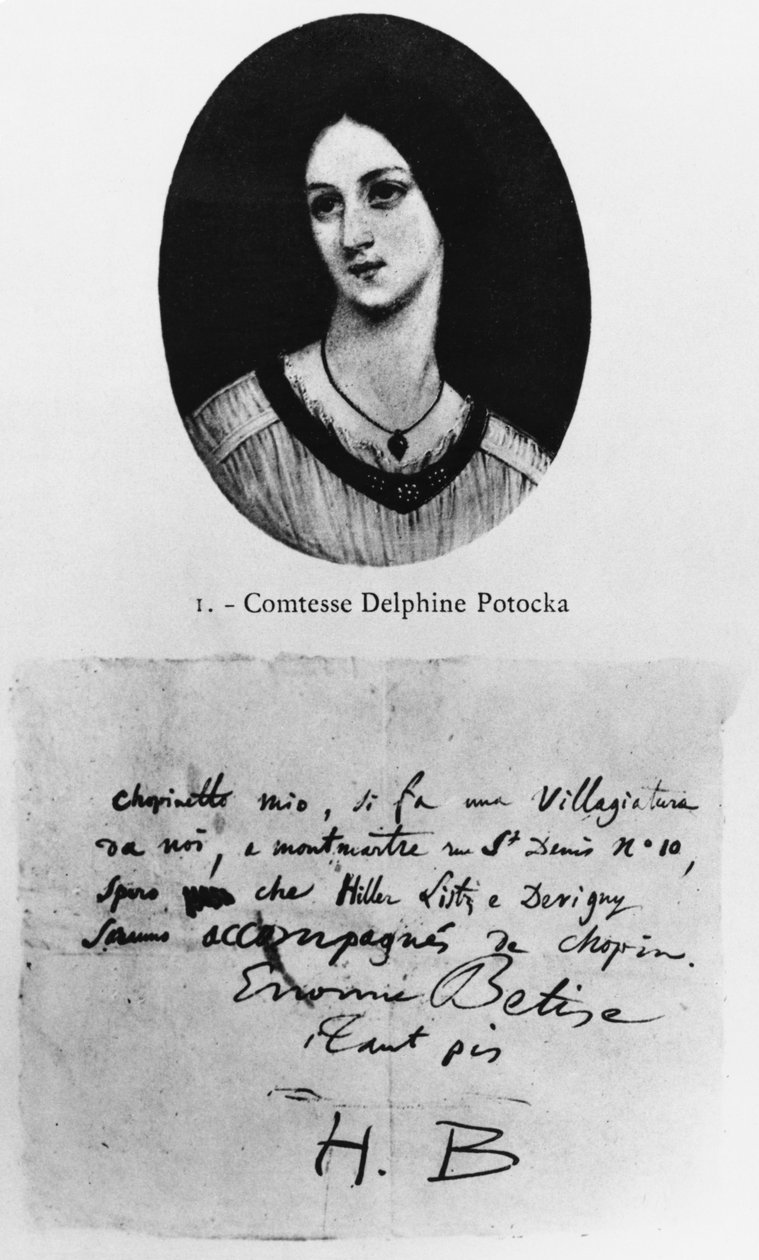 1. - Comtesse Delphine Potocka
Chopinetto mio, si fa una Villagiatura
da noi, a montmartre rue St Denis N° 10,
spero che Hiller Listz e Devigny
seranno accompagnés de chopin.
Enorme Betise
Tant pis
H. B